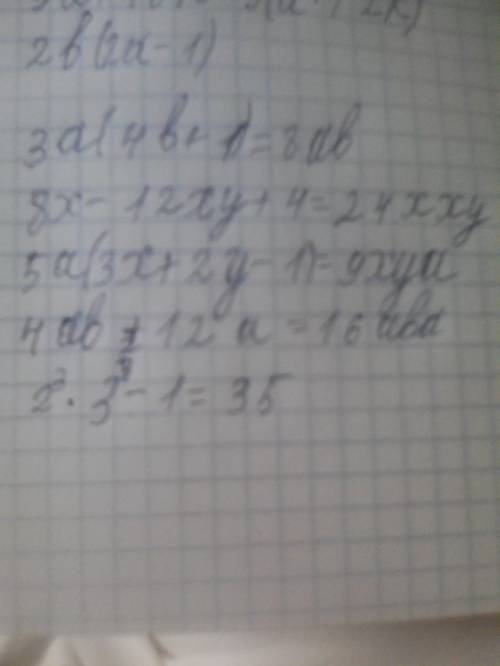 2b(2a-1)
3a(4b+1)=8ab
8x-12xy+4=24xxy
5a(3x+2y-1)=9xya
4ab+12a=16aba
2²·3²-1=35